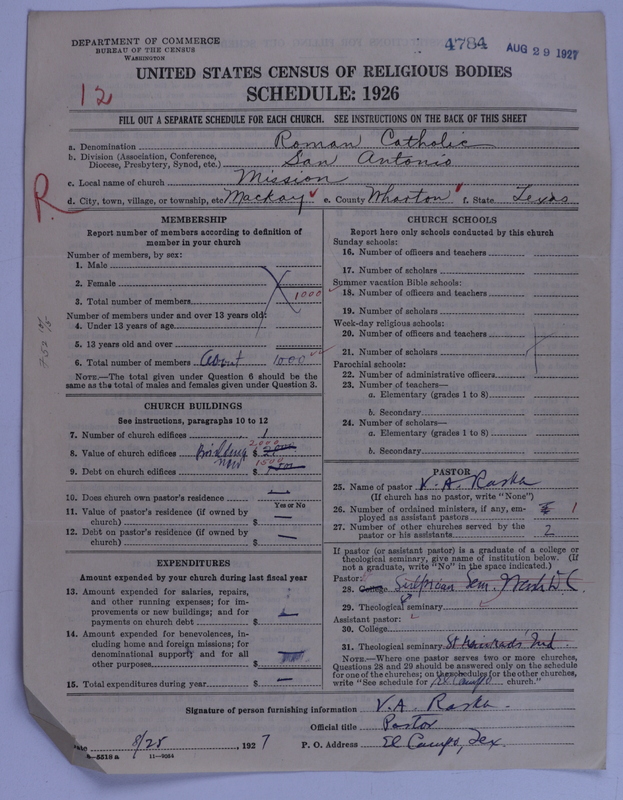 DEPARTMENT OF COMMERCE
BUREAU OF THE CENSUS
WASHINGTON
4784 AUG 29 1927
12
UNITED STATES CENSUS OF RELIGIOUS BODIES
SCHEDULE: 1926
FILL OUT A SEPARATE SCHEDULE FOR EACH CHURCH. SEE INSTRUCTIONS ON THE BACK OF THIS SHEET
a. Denomination Roman Catholic
b. Division (Association, Conference, Diocese, Presbytery, Synod, etc.) San Antonio
c. Local name of church Mission
R.
d. City, town, village, or township, etc Mackay e. County Wharton f. State Texas
MEMBERSHIP
Report number of members according to definition of
member in your church
Number of members, by sex:
1. Male
2. Female
3. Total number of members 1000
Number of members under and over 13 years old:
4. Under 13 years of age
5. 13 years old and over
6. Total number of members About 1000
NOTE.—The total given under Question 6 should be the
same as the total of males and females given under Question 3.
CHURCH BUILDINGS
See instructions, paragraphs 10 to 12
7. Number of church edifices 1
8. Value of church edifices Building now $ 2000
9. Debt on church edifices $ 1500
10. Does church own pastor's residence
Yes or No
11. Value of pastor's residence (if owned by
church) $ —
12. Debt on pastor's residence (if owned by
church) $ —
EXPENDITURES
Amount expended by your church during last fiscal year
13. Amount expended for salaries, repairs,
and other running expenses; for im-
provements or new buildings; and for
payments on church debt $
14. Amount expended for benevolences, in-
cluding home and foreign missions; for
denominational support; and for all
other purposes $
15. Total expenditures during year $ —
CHURCH SCHOOLS
Report here only schools conducted by this church
Sunday schools:
16. Number of officers and teachers
17. Number of scholars
Summer vacation Bible schools:
18. Number of officers and teachers
19. Number of scholars
Week-day religious schools:
20. Number of officers and teachers
21. Number of scholars
Parochial schools:
22. Number of administrative officers
23. Number of teachers—
a. Elementary (grades 1 to 8)
b. Secondary
24. Number of scholars—
a. Elementary (grades 1 to 8)
b. Secondary
PASTOR
25. Name of pastor V. A. Raska
(If church has no pastor, write "None")
26. Number of ordained ministers, if any, em-
ployed as assistant pastors 1
27. Number of other churches served by the
pastor or his assistants 2
If pastor (or assistant pastor) is a graduate of a college or
theological seminary, give name of institution below. (If
not a graduate, write "No" in the space indicated.)
Pastor:
28. College Sulpician Sem.
29. Theological seminary
Assistant pastor:
30. College
31. Theological seminary St Meinrads' Ind
NOTE.—Where one pastor serves two or more churches,
Questions 28 and 29 should be answered only on the schedule
for one of the churches; on the schedules for the other churches,
write "See schedule for El Campo church."
Signature of person furnishing information V. A. Raska
Official title Pastor
Date 8/25, 1927 P. O. Address El Campo, Tex.
8—5519 a 11—9054